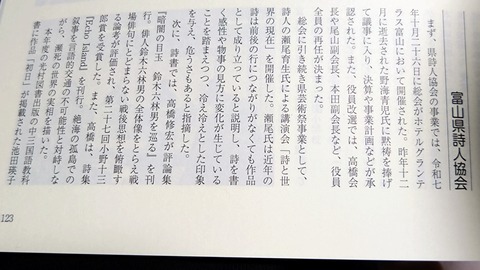 富山県詩人協会
まず、県詩人協会の事業では、令和七
年十月二十六日に総会がホテルグランテ
ラス富山において開催された。昨年十二
月に逝去された野海青児氏に黙祷を捧げ
て議事に入り、決算や事業計画などが承
認された。また、役員改選では、高橋会
長や尾山副会長、本田副会長など、役員
全員の再任が決まった。
総会に引き続き県芸術祭事業として、
詩人の瀬尾育生氏による講演会「詩と世
界の現在」を開催した。瀬尾氏は近年の
詩は前後の行につながりがなくても作品
として成り立っていると説明し、詩を書
く感性や物事の見方に変化が生じている
ことを踏まえつつ、冷え冷えとした印象
を与え、危うさもあると指摘した。
次に、詩書では、高橋修宏が評論集
『暗闇の目玉 鈴木六林男を巡る』を刊
行。俳人鈴木六林男の全体像をとらえ戦
場俳句にとどまらない戦後思想を俯瞰す
る論考が評価され、第二十七回小野十三
郎賞を受賞した。また、高橋は、詩集
『Echo Island』を刊行。絶海の孤島での
叙事を言語的交通の不可能性と対峙しな
がら、瀕死の世界の実相を描いた。
本年度の光村図書出版の中三国語教科
書に作品「初日」が掲載された池田瑛子
123